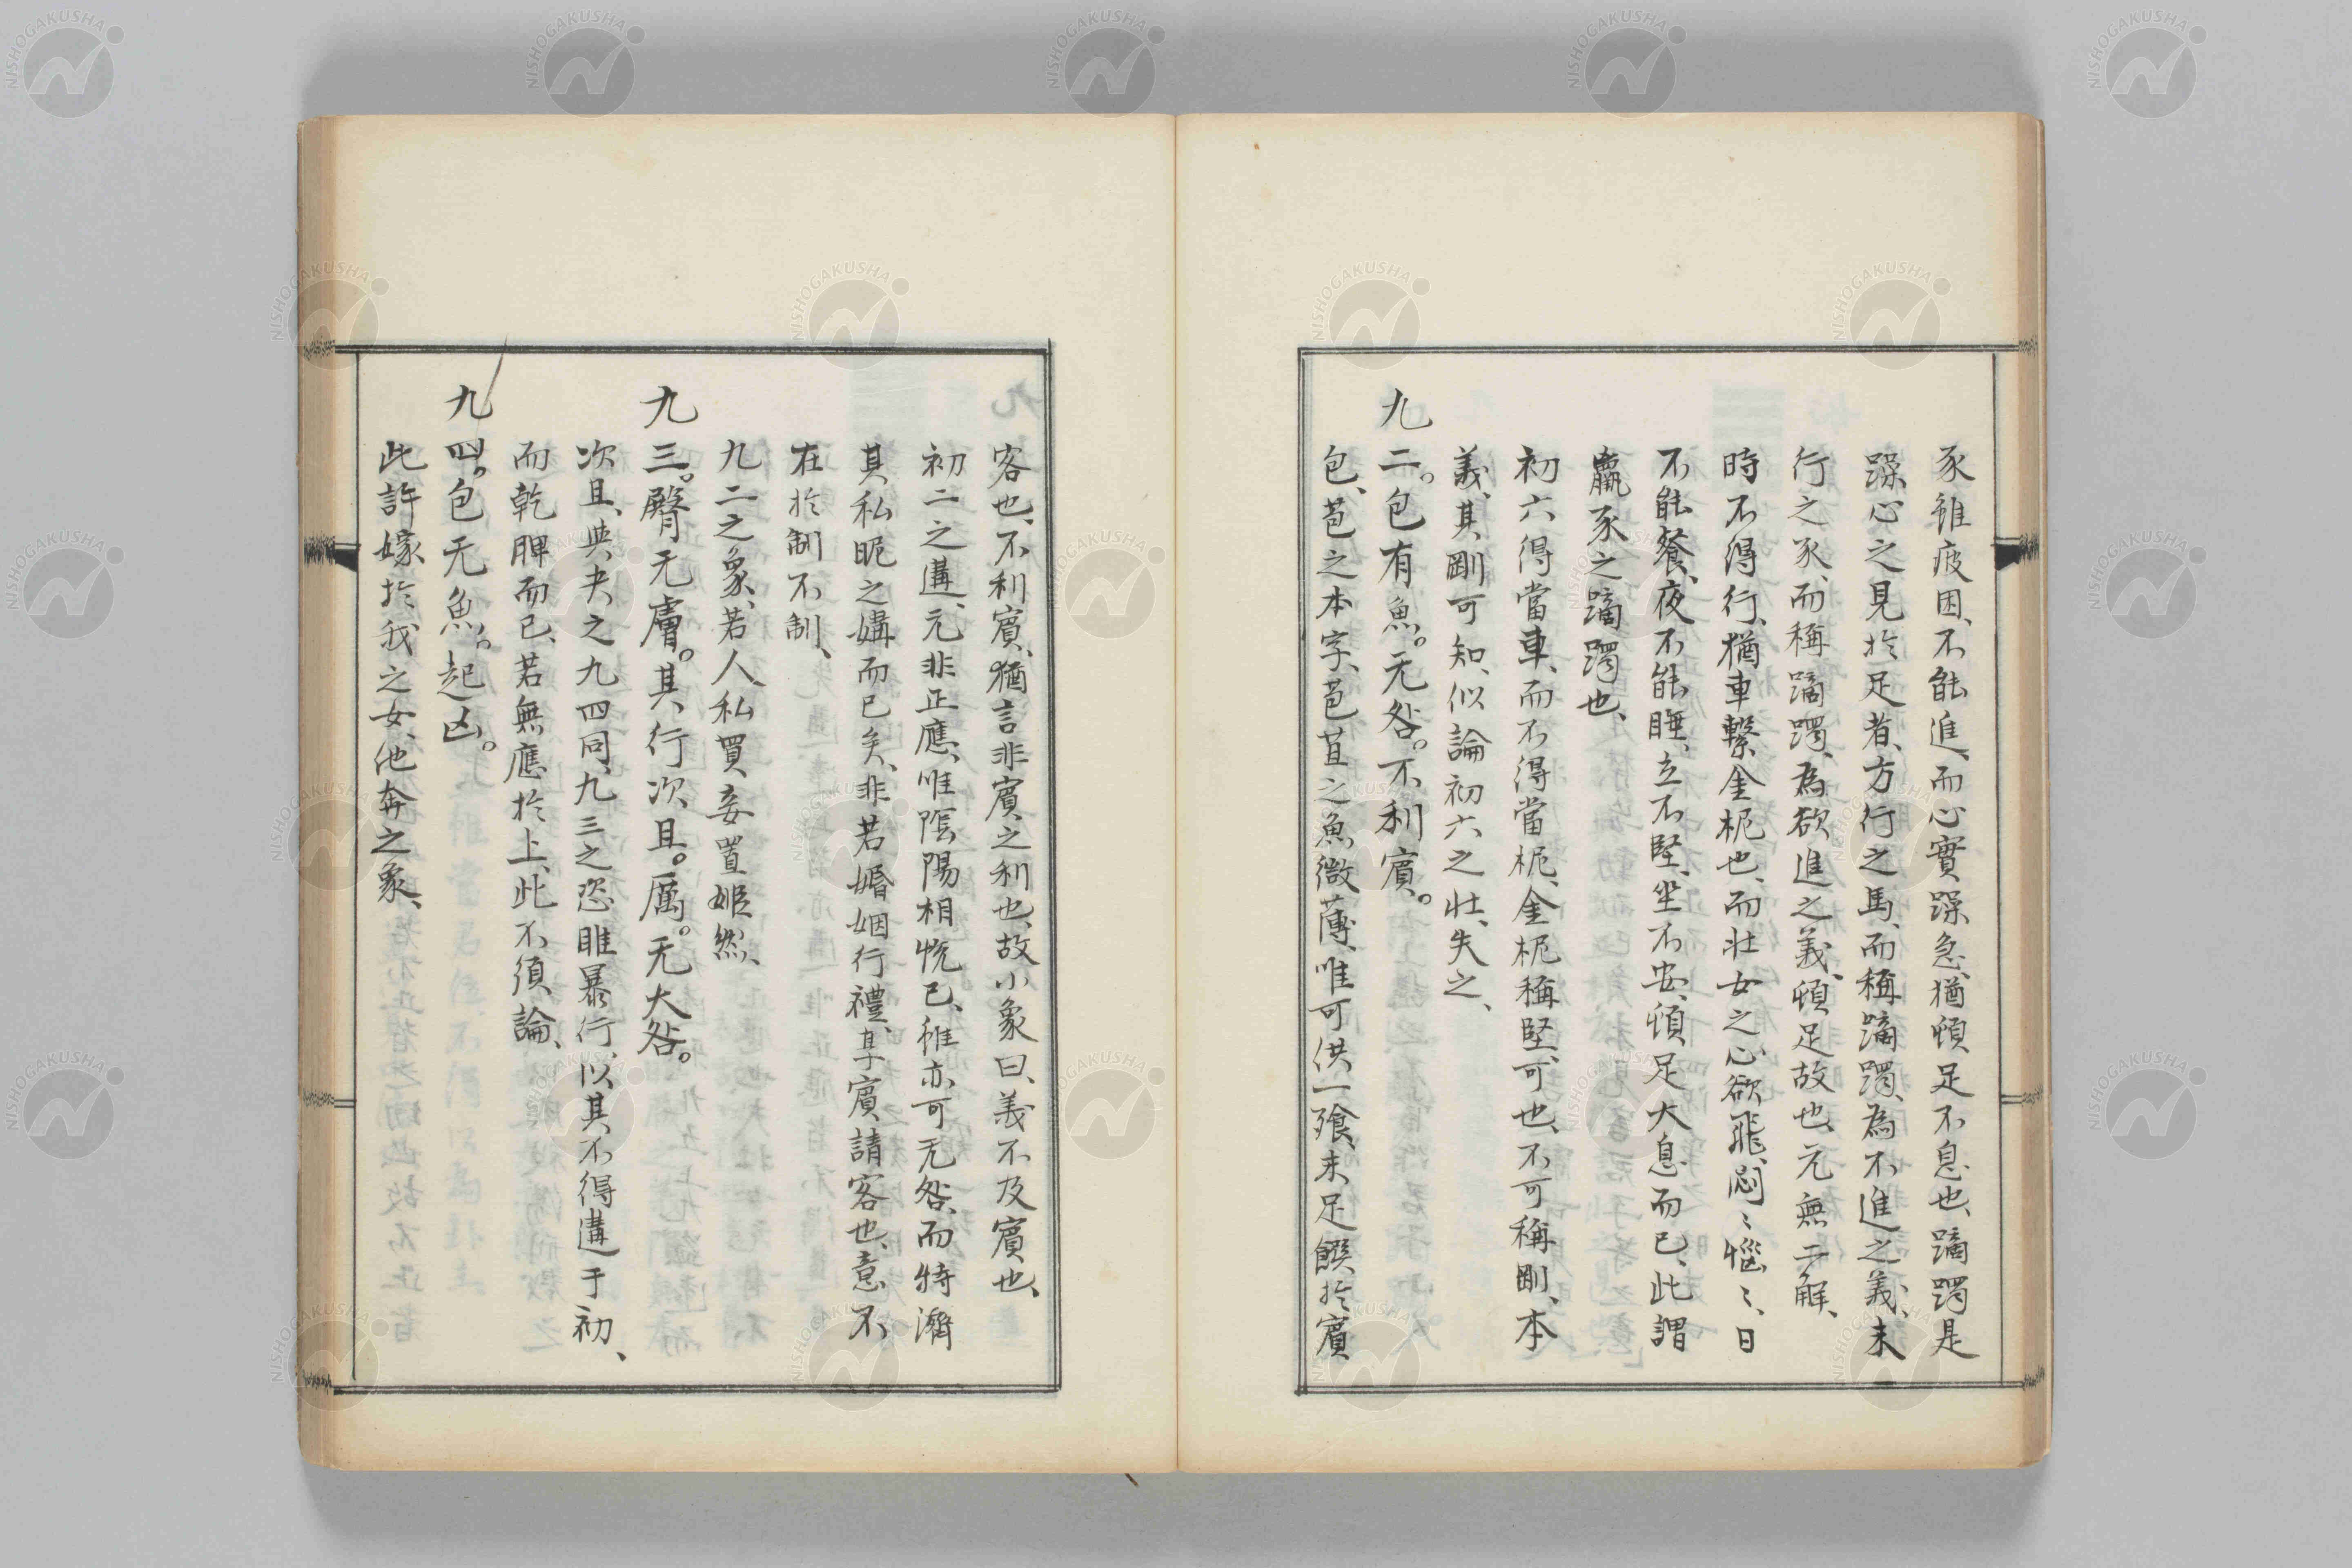 豕雖疲困、不能進、而心實躁急、猶頓足不息也、蹢躅是
躁心之見於足者、方行之馬、而稱蹢躅、為不進之義、未
行之豕、而稱蹢躅、為欲進之義、頓足故也、元無二解、
時不得行、猶車繫金柅也、而壯女之心欲飛、悶〻惱〻、日
不能餐、夜不能睡、立不堅、坐不安、頓足大息而已、此謂
羸豕之蹢躅也、
初六得當車、而不得當柅、金柅稱堅、可也、不可稱剛、本
義、其剛可知、似論初六之壯、失之、
九二。包有魚。无咎。不利賓。
包、苞之本字、苞苴之魚微薄、唯可供一飱、未足饌於賓
客也、不利賓、猶言非賓之利也、故小象曰、義不及賓也、
初二之遘、元非正應、唯陰陽相悅已、雖亦可无咎、而特濟
其私昵之媾而已矣、非若婚姻行禮、享賓請客也、意不
在於制不制、
九二之象、若人私買妾置姬然、
九三。臀无膚。其行次且。厲。无大咎。
次且、與夬之九四同、九三之恣睢暴行、以其不得遘于初、
而乾脾而已、若無應於上、此不須論、
九四。包无魚。起凶。
此許嫁於我之女、他奔之象、
NISHOGAKUSHA